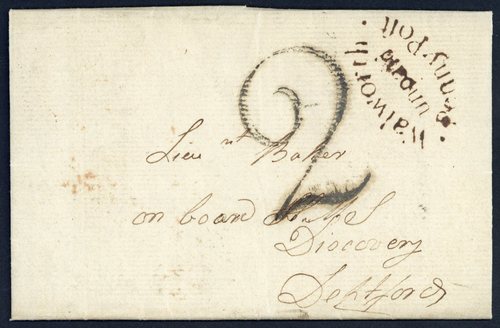 Walworth
unpaid
Penny Post
2
Lieu nt Baker
on board
Discovery
Deptford